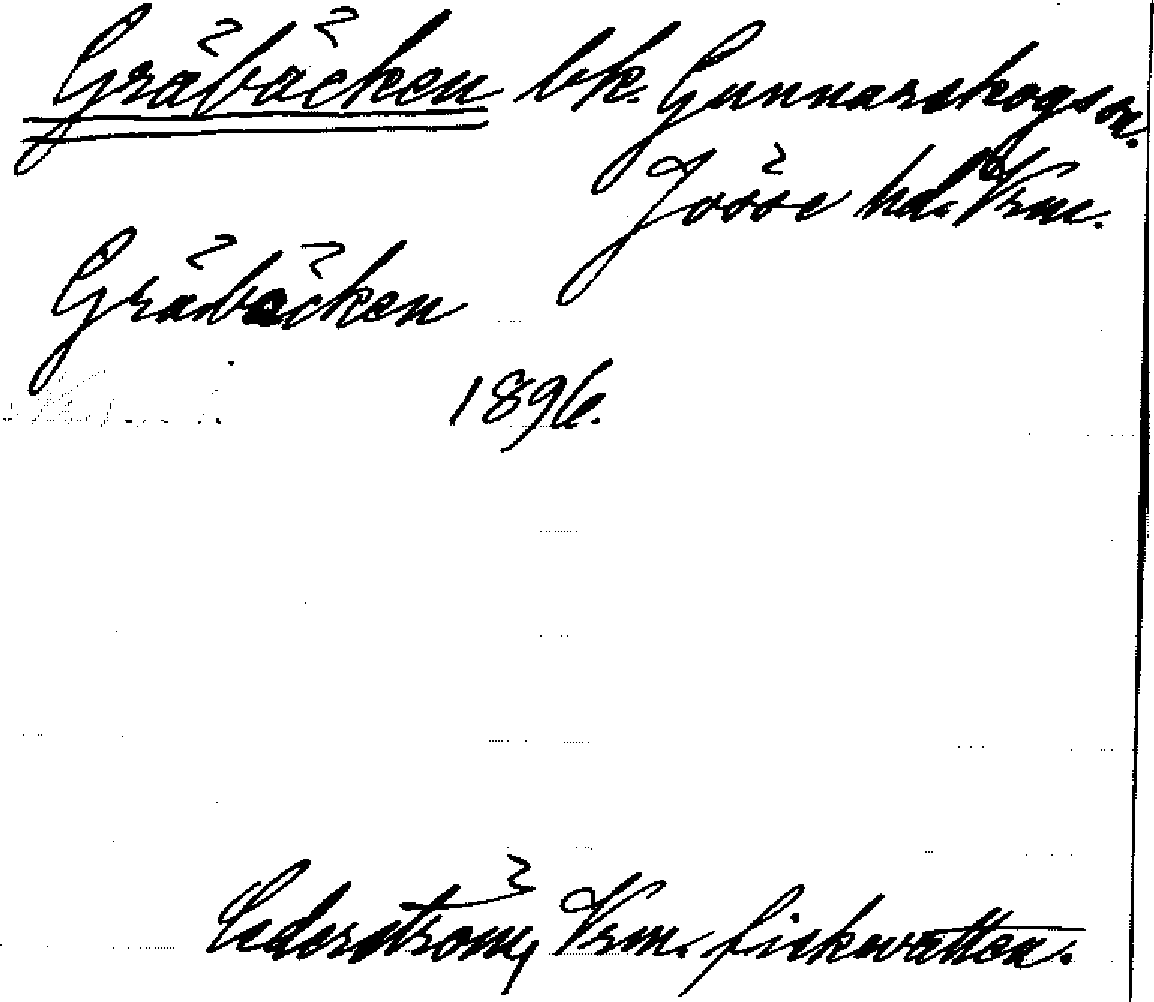 Gräbäcken bk. Gunnarskogs sn.
Jösse hd. Vrm.
Gräbäcken
1896.
Cederström, Vrm. fiskvatten.